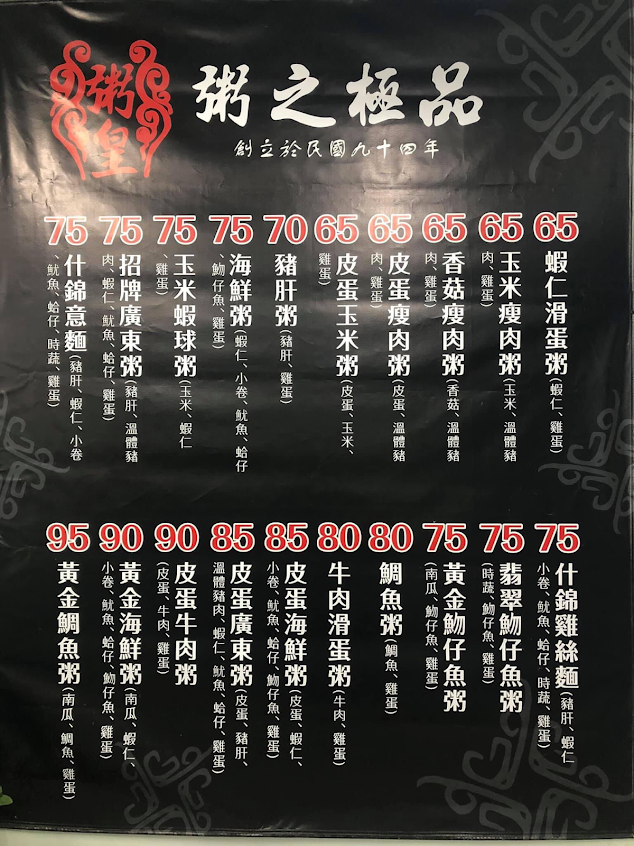 粥皇
粥之極品
創立於民國九十四年
65
蝦仁滑蛋粥(蝦仁、雞蛋)
65
玉米瘦肉粥(玉米、溫體豬
肉、雞蛋)
65
香菇瘦肉粥(香菇、溫體豬
肉、雞蛋)
65
皮蛋瘦肉粥(皮蛋、溫體豬
肉、雞蛋)
65
皮蛋玉米粥(皮蛋、玉米、
雞蛋)
70
豬肝粥(豬肝、雞蛋)
75
海鮮粥(蝦仁、小卷、魷魚、蛤仔
、魩仔魚、雞蛋)
75
玉米蝦球粥(玉米、蝦仁
、雞蛋)
75
招牌廣東粥(豬肝、溫體豬
肉、蝦仁、魷魚、蛤仔、雞蛋)
75
什錦意麵(豬肝、蝦仁、小卷
、魷魚、蛤仔、時蔬、雞蛋)
75
什錦雞絲麵(豬肝、蝦仁
小卷、魷魚、蛤仔、時蔬、雞蛋)
75
翡翠魩仔魚粥
(時蔬、魩仔魚、雞蛋)
75
黃金魩仔魚粥
(南瓜、魩仔魚、雞蛋)
80
鯛魚粥(鯛魚、雞蛋)
80
牛肉滑蛋粥(牛肉、雞蛋)
85
皮蛋海鮮粥(皮蛋、蝦仁、
小卷、魷魚、蛤仔、魩仔魚、雞蛋)
85
皮蛋廣東粥(皮蛋、豬肝、
溫體豬肉、蝦仁、魷魚、蛤仔、雞蛋)
90
皮蛋牛肉粥
(皮蛋、牛肉、雞蛋)
90
黃金海鮮粥(南瓜、蝦仁、
小卷、魷魚、蛤仔、魩仔魚、雞蛋)
95
黃金鯛魚粥(南瓜、鯛魚、雞蛋)